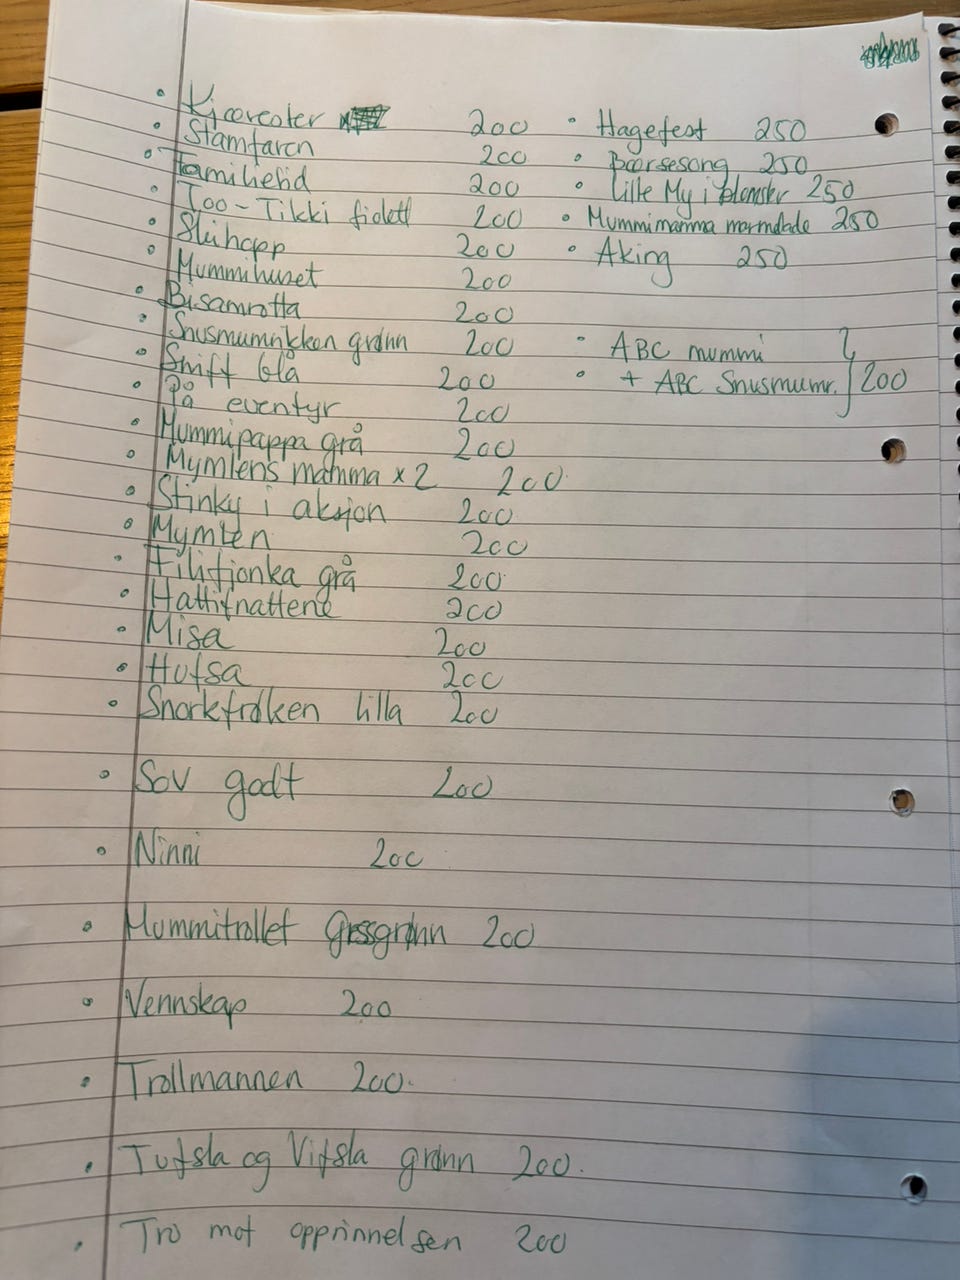 • Kjærester 200
• Stamfaren 200
• Familietid 200
• Too-Tikki fiolett 200
• Skihopp 200
• Mummihuset 200
• Bisamrotta 200
• Snusmumrikken grønn 200
• Sniff blå 200
• På eventyr 200
• Mummipappa grå 200
• Mymlens mamma x 2 200
• Stinky i aksjon 200
• Mymlen 200
• Filifjonka grå 200
• Hattifnattene 200
• Misa 200
• Hufsa 200
• Snorkfrøken lilla 200
• Sov godt 200
• Ninni 200
• Mummitrollet Gressgrønn 200
• Vennskap 200
• Trollmannen 200.
• Tufsla og Vifsla grønn 200.
• Tro mot opprinnelsen 200
• Hagefest 250
• Bærsesong 250
• Lille My i blomster 250
• Mummimamma marmelade 250
• Aking 250
• ABC mummi
• + ABC Snusmumr. } 200